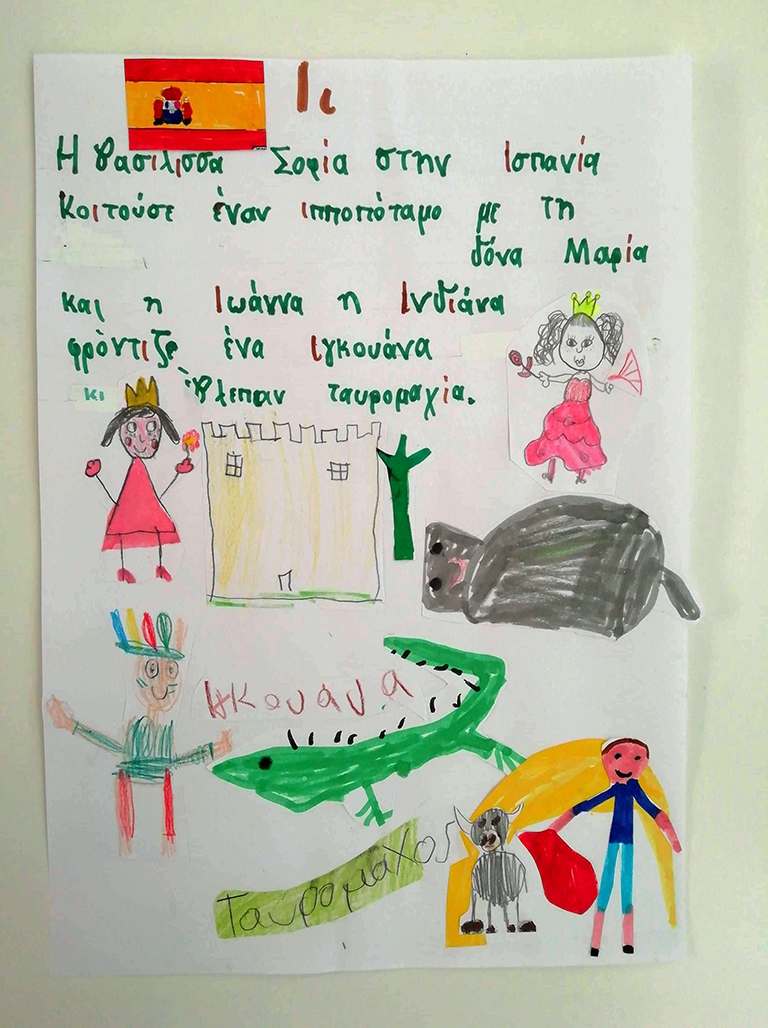 Ιι
Η βασίλισσα Σοφία στην Ισπανία
κοιτούσε έναν ιπποπόταμο με τη
δόνα Μαρία
και η Ιωάννα η Ινδιάνα
φρόντιζε ένα ιγκουάνα
κι έβλεπαν ταυρομαχία.
Ιγκουάνα
Ταυρομάχος